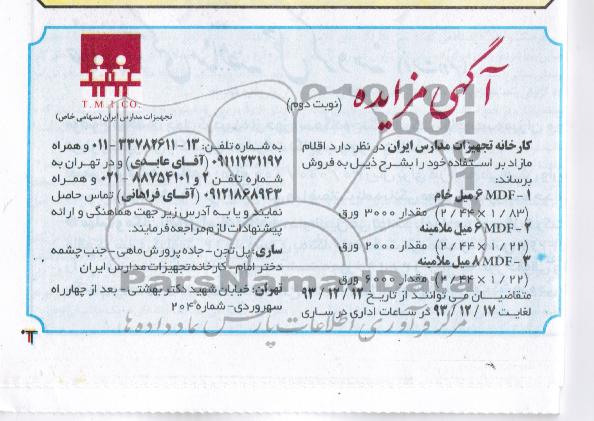 آگهی مزایده
(نوبت دوم)
T.M.I.CO.
تجهیزات مدارس ایران (سهامی خاص)
کارخانه تجهیزات مدارس ایران در نظر دارد اقلام
مازاد بر استفاده خود را بشرح ذیل به فروش
برساند:
۱ - MDF ۶ میل خام
(۲/۴۴ × ۱/۸۳) مقدار ۳۰۰۰ ورق
۲ - MDF ۶ میل ملامینه
(۲/۴۴ × ۱/۲۲) مقدار ۲۰۰۰ ورق
۳ - MDF ۸ میل ملامینه
(۲/۴۴ × ۱/۲۲) مقدار ۶۰۰۰ ورق
متقاضیان می توانند از تاریخ ۹۳/۱۲/۱۲
لغایت ۹۳/۱۲/۱۷ در ساعات اداری در ساری
به شماره تلفن: ۱۳-۳۳۷۸۲۶۱۱-۰۱۱ و همراه
۰۹۱۱۱۲۳۱۱۹۷ (آقای عابدی) و در تهران به
شماره تلفن ۲ و ۸۸۷۵۴۱۰۱ - ۰۲۱ و همراه
۰۹۱۲۱۸۶۸۹۴۳ (آقای فراهانی) تماس حاصل
نمایند و یا به آدرس زیر جهت هماهنگی و ارائه
پیشنهادات لازم مراجعه فرمایند.
ساری: پل تجن - جاده پرورش ماهی - جنب چشمه
دختر امام - کارخانه تجهیزات مدارس ایران
تهران: خیابان شهید دکتر بهشتی - بعد از چهارراه
سهروردی - شماره ۲۰۴
مرکز فرآوری اطلاعات پارس نماد داده ها